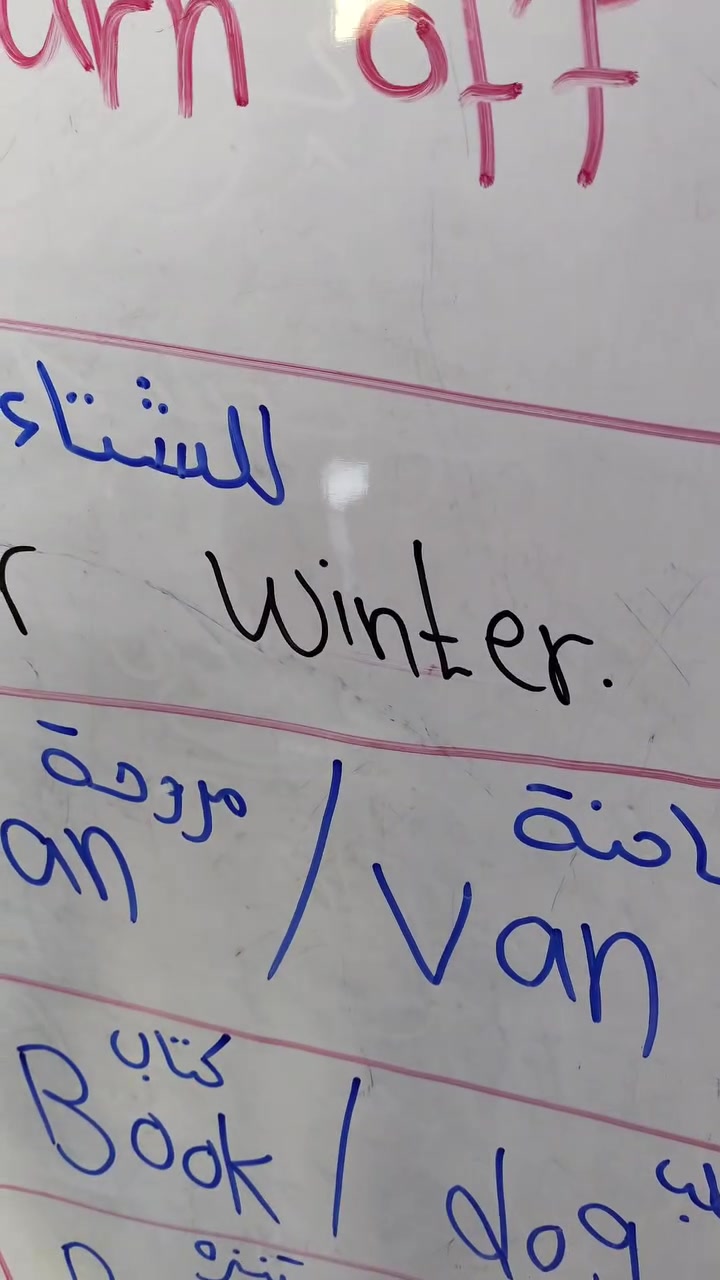 urn off
للشتاء
r Winter.
مروحة
an / Van
كتاب
Book / dog